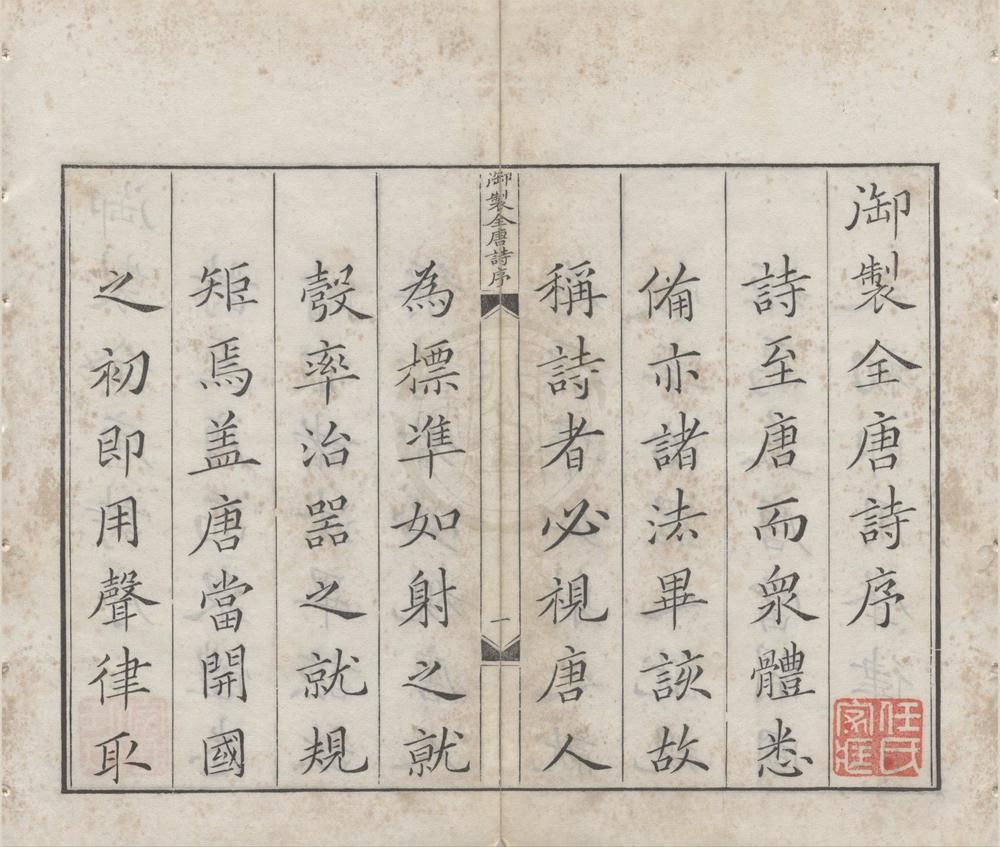 御製全唐詩序
詩至唐而眾體悉
備亦諸法畢該故
稱詩者必視唐人
御製全唐詩序
一
為標準如射之就
彀率治器之就規
矩焉蓋唐當開國
之初即用聲律取
任氏家藏